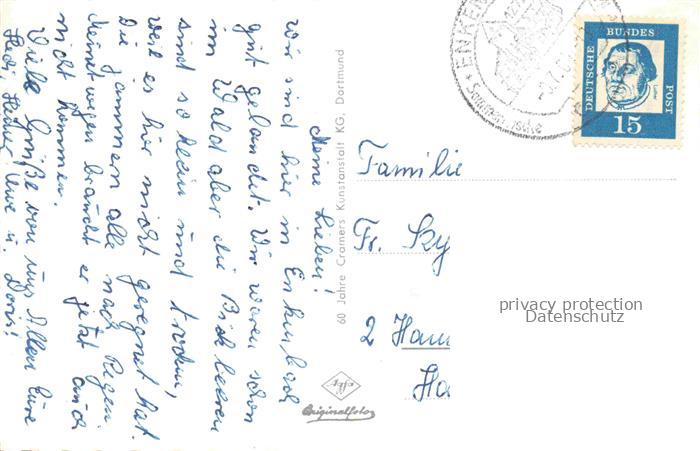 Meine Lieben!
Wir sind hier in Enkenbach
gut gelandet. Wir waren schon
im Wald aber die Bickbeeren
sind so klein und trocken,
weil es hier nicht geregnet hat.
Die jammern alle nach Regen.
Meinetwegen braucht er jetzt auch
nicht kommen.
Viele Grüße von uns Allen Eure
Hedi, Heiner, Uwe u. Doris!
60 Jahre Cramers Kunstanstalt KG, Dortmund
Originalfoto
ENKEN
DEUTSCHE BUNDES POST
15
Familie
Fr. Sky
2 Ham
Ha
privacy protection
Datenschutz